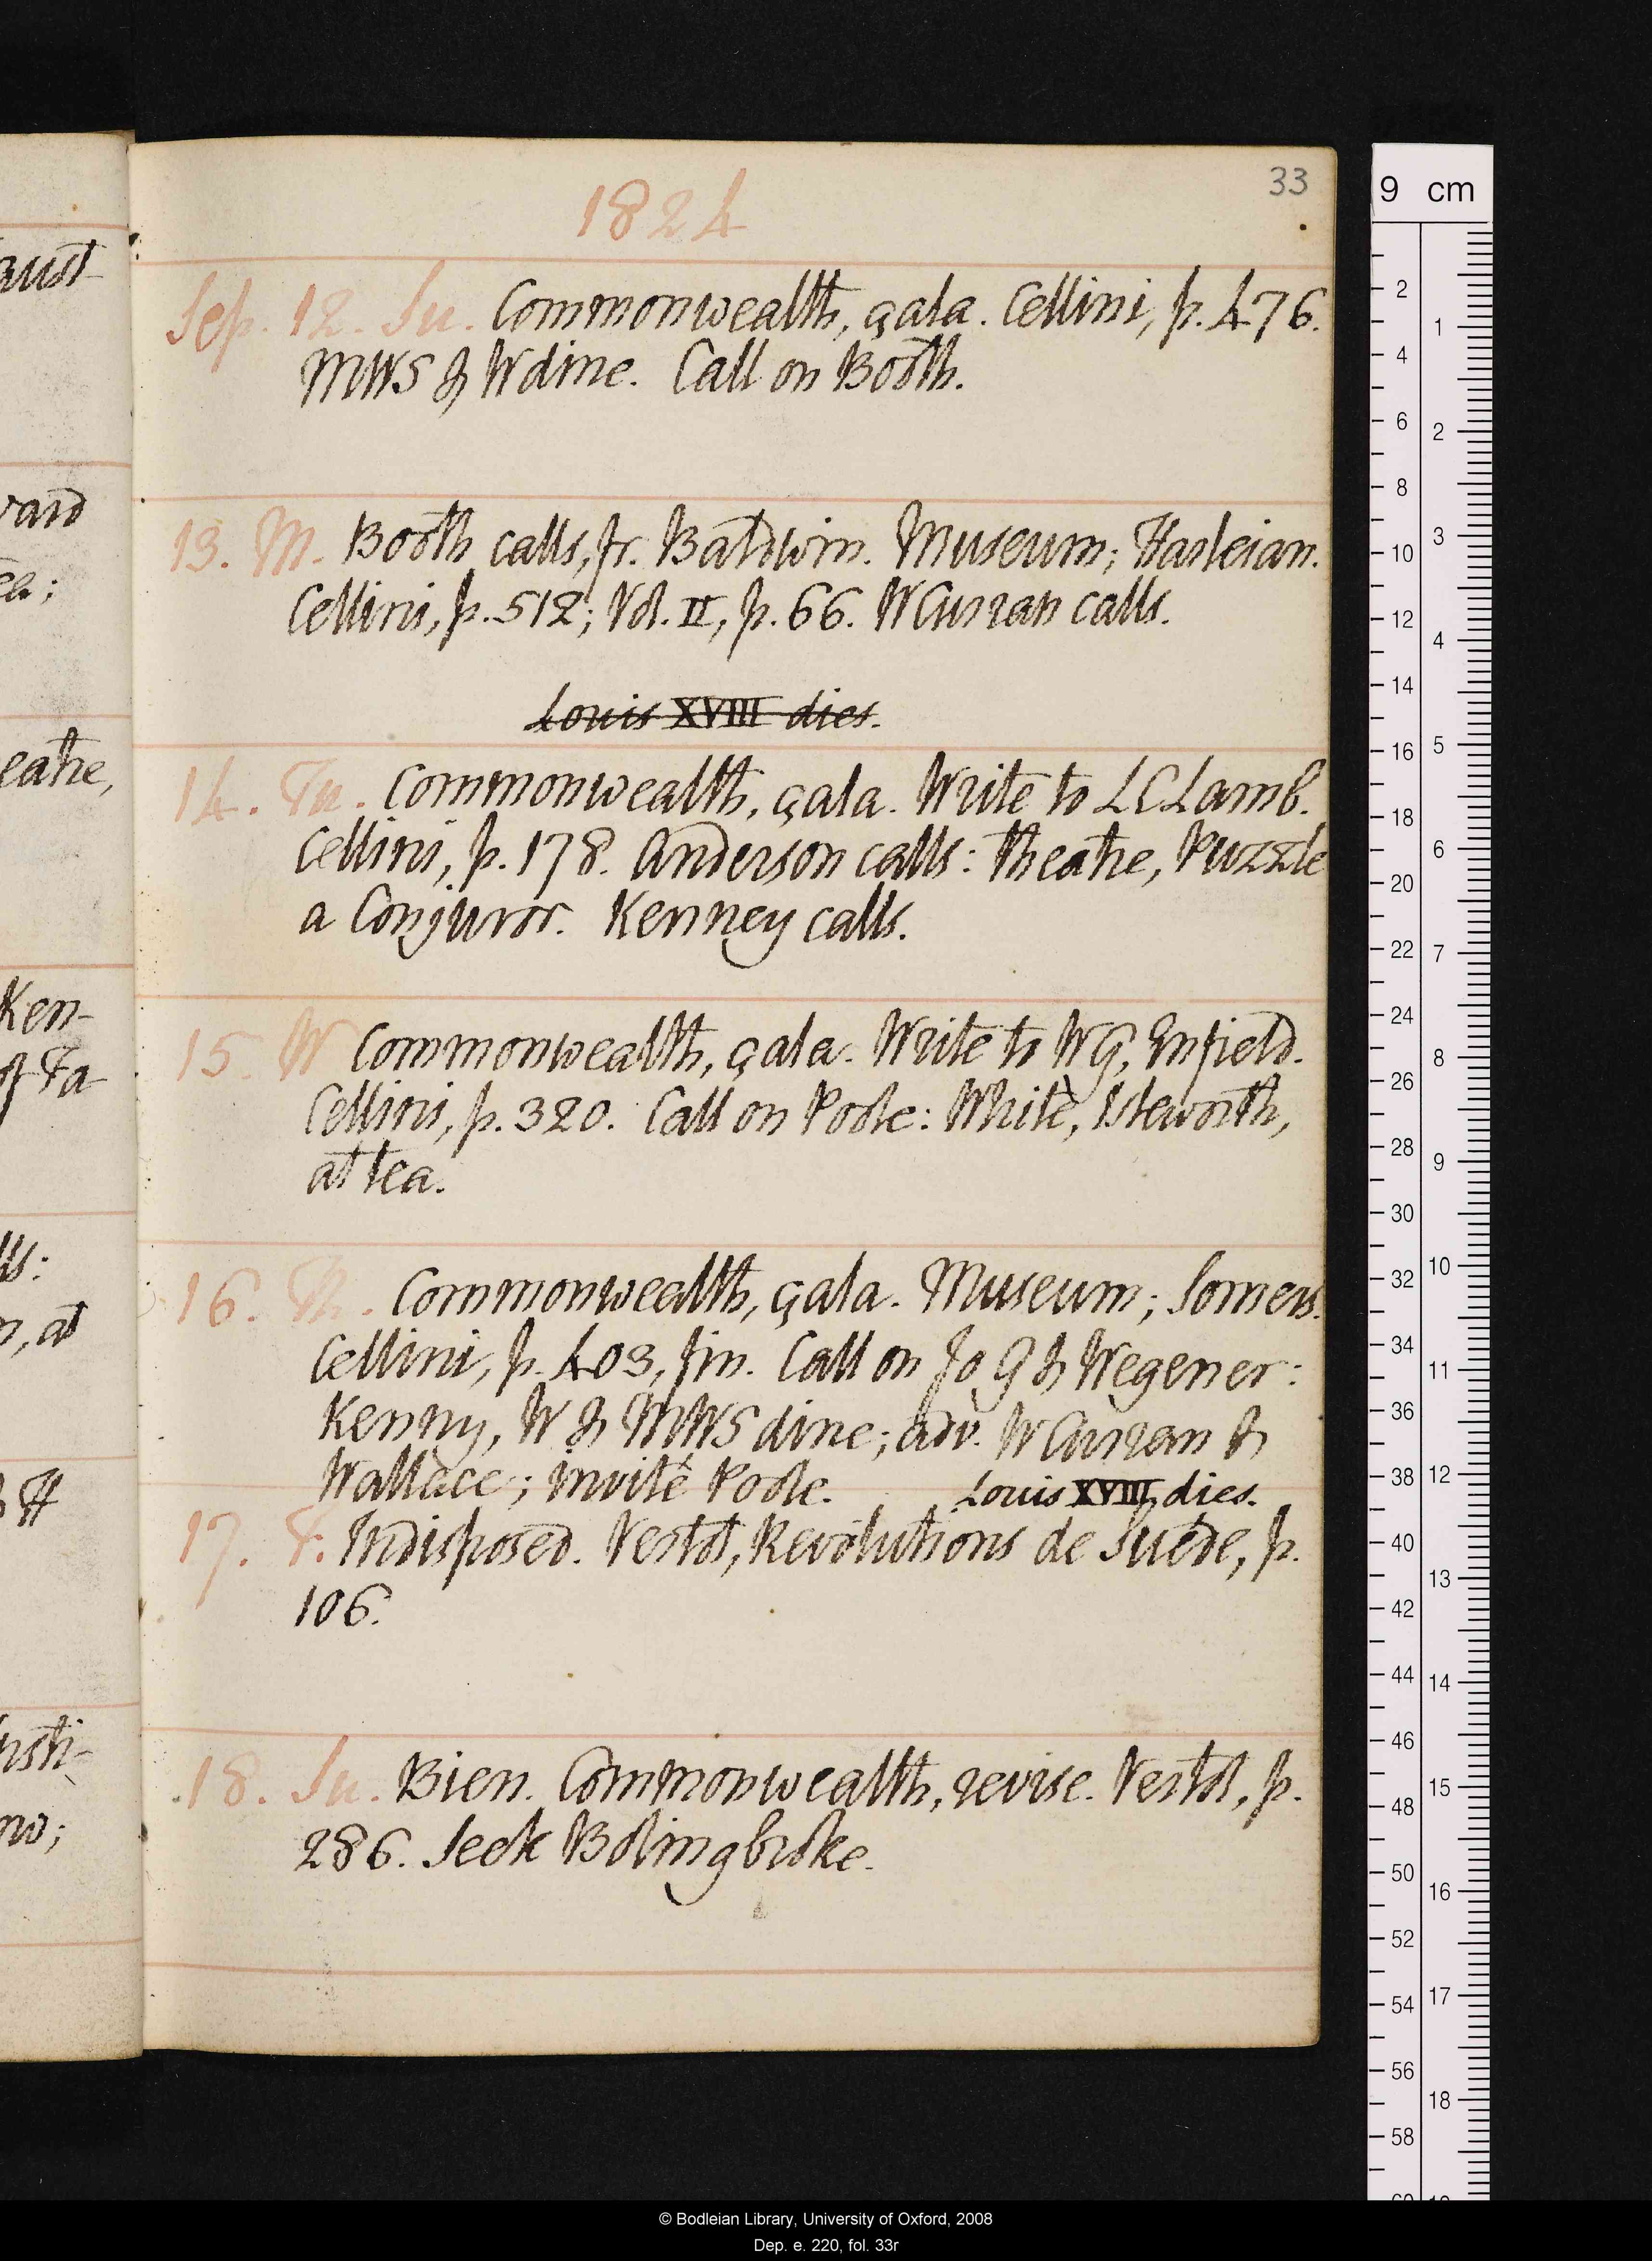 33
1824
Sep. 12. Su. Commonwealth, çala. Cellini, p. 476.
MWS & W dine. Call on Booth.
13. M. Booth calls, fr. Baldwin. Museum; Harleian.
Cellini, p. 512; Vol. II, p. 66. W Curran calls.
Louis XVIII dies.
14. Tu. Commonwealth, çala. Write to L C Lamb.
Cellini, p. 178. Anderson calls: theatre, Puzzle
a Conjuror. Kenney calls.
15. W Commonwealth, çala. Write to WG, Enfield.
Cellini, p. 320. Call on Poole: White, Isleworth,
at tea.
16. Th. Commonwealth, çala. Museum; Somers.
Cellini, p. 403, fin. Call on Jo G & Wegener:
Kenny, W & MWS dine; adv. W Curran &
Wallace; invité Poole. Louis XVIII dies.
17. F. Indisposed. Vertot, Revolutions de Suede, p.
106.
18. Su. Bien. Commonwealth, revise. Vertot, p.
286. Seek Bolingbroke.
aust
ward
eatre,
Ken-
& Fa
lls:
n, at
& H
nsti-
no;
9 cm
2
4
6
8
10
12
14
16
18
20
22
24
26
28
30
32
34
36
38
40
42
44
46
48
50
52
54
56
58
1
2
3
4
5
6
7
8
9
10
11
12
13
14
15
16
17
18
© Bodleian Library, University of Oxford, 2008
Dep. e. 220, fol. 33r